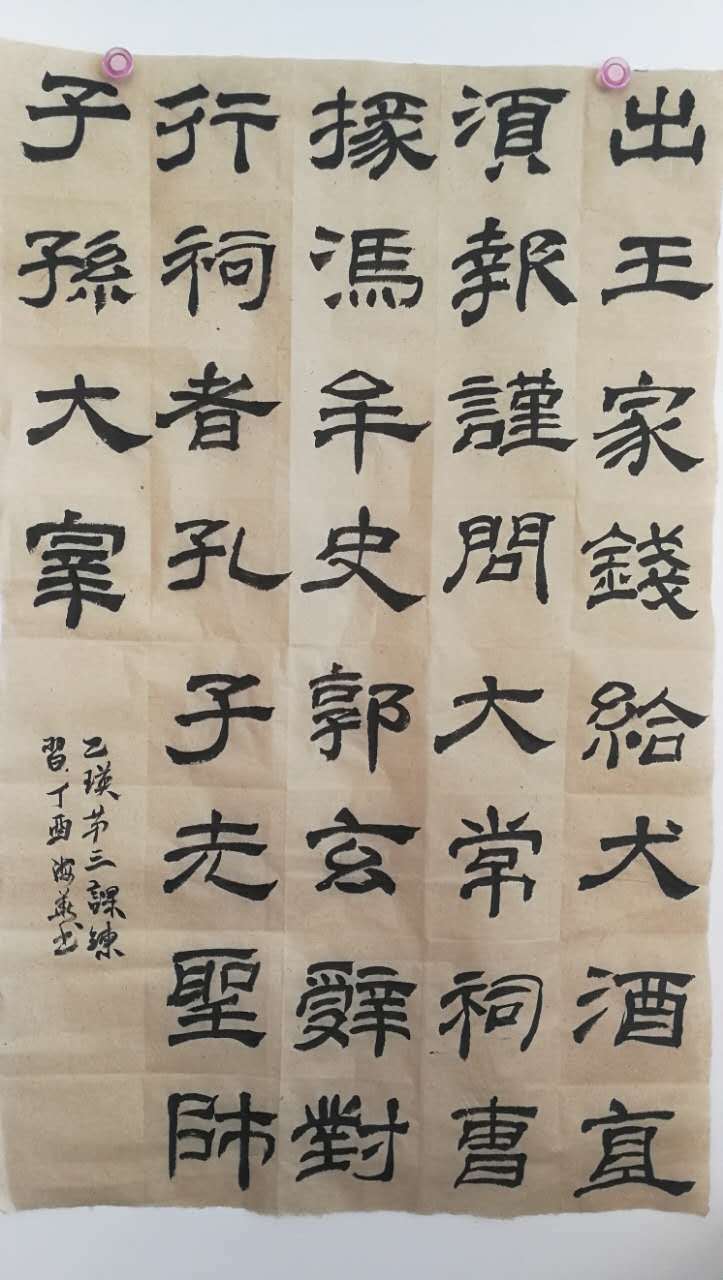 出王家錢給犬酒直
須報謹問大常祠曹
掾馮牟史郭玄辤對
行祠者孔子先聖師
子孫大宰
乙瑛第三課練
習丁酉海燕书